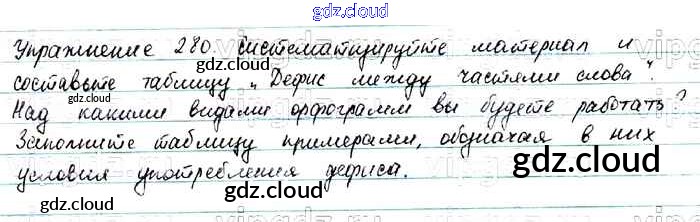 gdz.cloud
Упражнение 280. Систематизируйте материал и
составьте таблицу „Дефис между частями слова".
gdz.cloud
Над какими видами орфограмм вы будете работать?
Заполните таблицу примерами, обозначая в них
gdz.cloud
условия употребления дефиса.
gdz.cloud